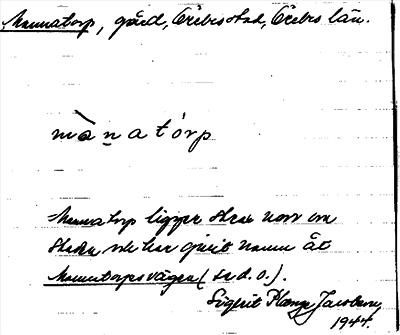 Mannatorp, gård, Örebro stad, Örebro län.
mànatórp
Mannatorp ligger strax norr om
staden och har givit namn åt
Mannatorpsvägen (se d. o.).
Sigrit Plænge Jacobson
1944.